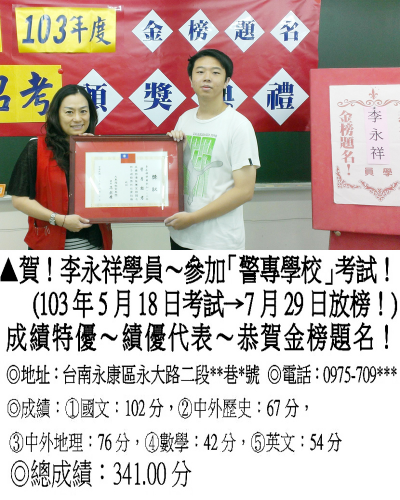 103年度
金榜題名
招考
頒獎典禮
金榜題名！
李永祥
學員
▲賀！李永祥學員～參加「警專學校」考試！
(103年5月18日考試→7月29日放榜！)
成績特優～績優代表～恭賀金榜題名！
◎地址：台南永康區永大路二段**巷*號 ◎電話：0975-709***
◎成績：①國文：102分，②中外歷史：67分，
③中外地理：76分，④數學：42分，⑤英文：54分
◎總成績：341.00分